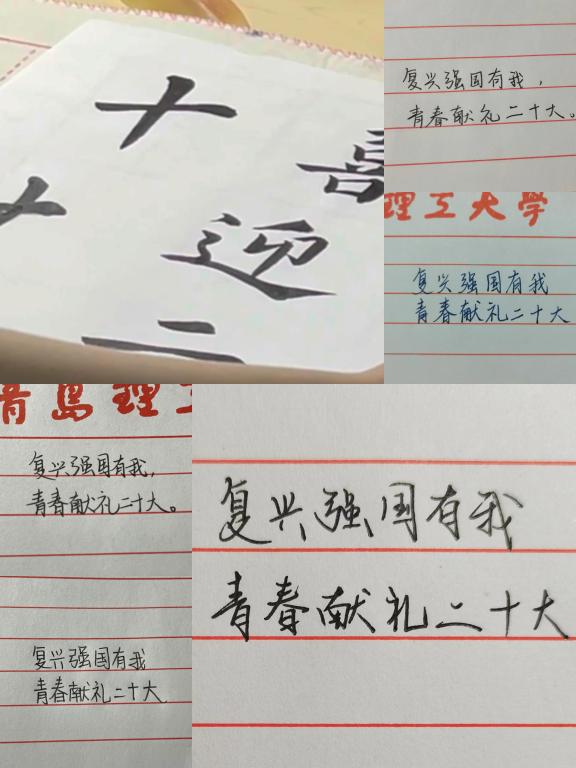 喜迎二
十大
复兴强国有我，
青春献礼二十大。
理工大学
复兴强国有我
青春献礼二十大
青岛理工
复兴强国有我，
青春献礼二十大。
复兴强国有我
青春献礼二十大
复兴强国有我
青春献礼二十大